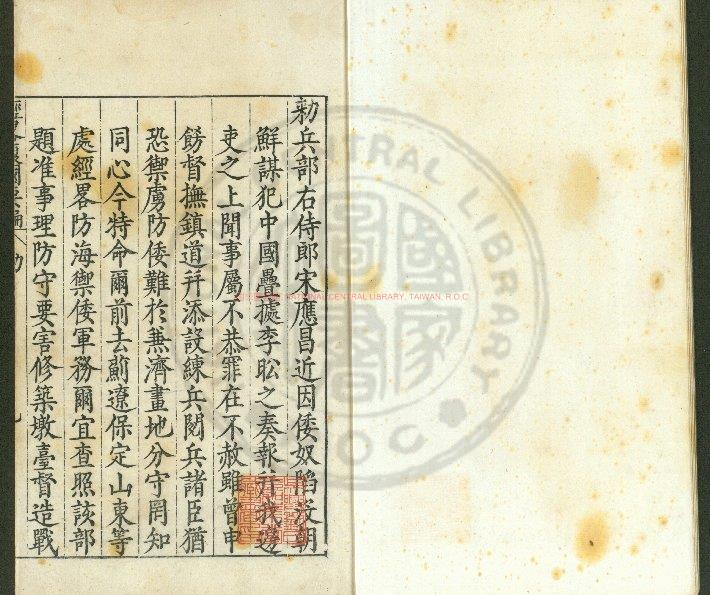 勑兵部右侍郎宋應昌近因倭奴陷沒朝
鮮謀犯中國疊據李昖之奏報幷我邊
吏之上聞事屬不恭罪在不赦雖曾申
飭督撫鎮道幷添設練兵閱兵諸臣猶
恐禦虜防倭難於兼濟畫地分守罔知
同心今特命爾前去薊遼保定山東等
處經畧防海禦倭軍務爾宜查照該部
題准事理防守要害修築墩臺督造戰
NATIONAL CENTRAL LIBRARY, TAIWAN, R.O.C